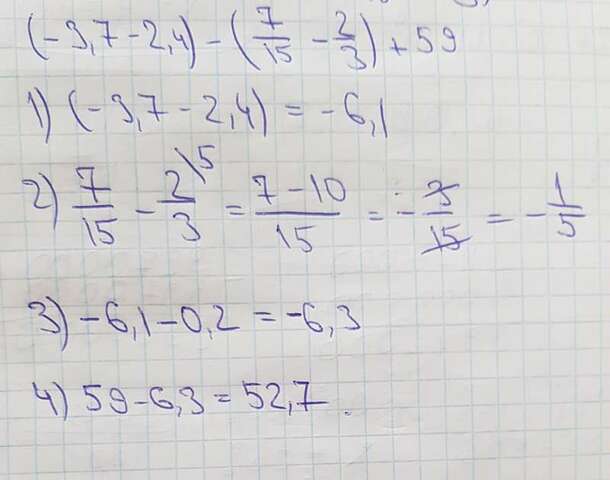 (-3,7-2,4)-(7/15-2/3)+59
1) (-3,7-2,4)=-6,1
2) 7/15-2/3\5=7-10/15=-3/15=-1/5
3) -6,1-0,2=-6,3
4) 59-6,3=52,7.